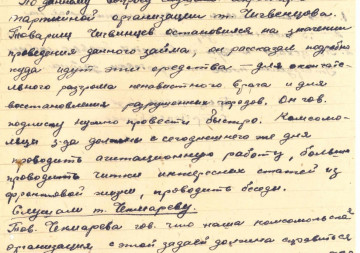 По данному вопросу
партийной организации т. Чигвенцева.
Товарищ Чигвинцев остановился на значении
проведения данного займа, он рассказал подробно
куда идут эти средства — для окончате-
льного разгрома ненавистного врага и для
восстановления разрушенных городов. Он гов.
подписку нужно провести быстро. Комсомо-
льцы з-да должны с сегодняшнего же дня
проводить агитационную работу, больше
проводить читки интересных статей из
фронтовой жизни, проводить беседы.
Слушали т. Чекмареву.
Тов. Чекмарева гов. что наша комсомольская
организация с этой задачей должна справиться